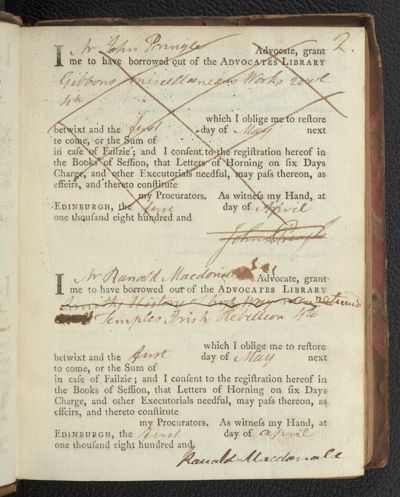 2.
I Mr John Pringle Advocate, grant
me to have borrowed out of the ADVOCATES LIBRARY
Gibbons miscellaneous Works
4to
which I oblige me to reſtore
betwixt and the firſt day of May next
to come, or the Sum of
in caſe of Failzie; and I conſent to the regiſtration hereof in
the Books of Seſſion, that Letters of Horning on ſix Days
Charge, and other Executorials needful, may paſs thereon, as
effeirs, and thereto conſtitute
my Procurators. As witneſs my Hand, at
EDINBURGH, the firſt day of April
one thouſand eight hundred and
John Pringle
I Mr Ranald Macdonald Advocate, grant
me to have borrowed out of the ADVOCATES LIBRARY
Smiths History of returned
Temples Irish Rebellion 4to
which I oblige me to reſtore
betwixt and the firſt day of May next
to come, or the Sum of
in caſe of Failzie; and I conſent to the regiſtration hereof in
the Books of Seſſion, that Letters of Horning on ſix Days
Charge, and other Executorials needful, may paſs thereon, as
effeirs, and thereto conſtitute
my Procurators. As witneſs my Hand, at
EDINBURGH, the firſt day of April
one thouſand eight hundred and,
Ranald Macdonald